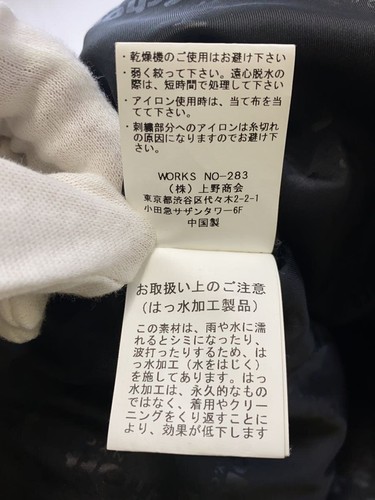 ・乾燥機のご使用はお避け下さい
・弱く絞って下さい。遠心脱水の
際は、短時間で処理して下さい
・アイロン使用時は、当て布を当
てて下さい。
・刺繍部分へのアイロンは糸切れ
の原因になりますのでお避け下
さい。
WORKS NO-283
(株)上野商会
東京都渋谷区代々木2-2-1
小田急サザンタワー6F
中国製
お取扱い上のご注意
(はっ水加工製品)
この素材は、雨や水に濡
れるとシミになったり、
波打ったりするため、は
っ水加工(水をはじく)
を施してあります。はっ
水加工は、永久的なもの
ではなく、着用やクリー
ニングをくり返すことに
より、効果が低下します